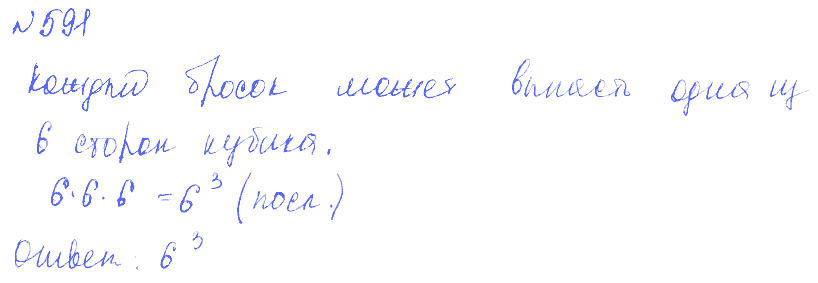 №591
Каждый бросок может выпасть одна из
6 сторон кубика.
6·6·6 = 6³ (посл.)
Ответ: 6³